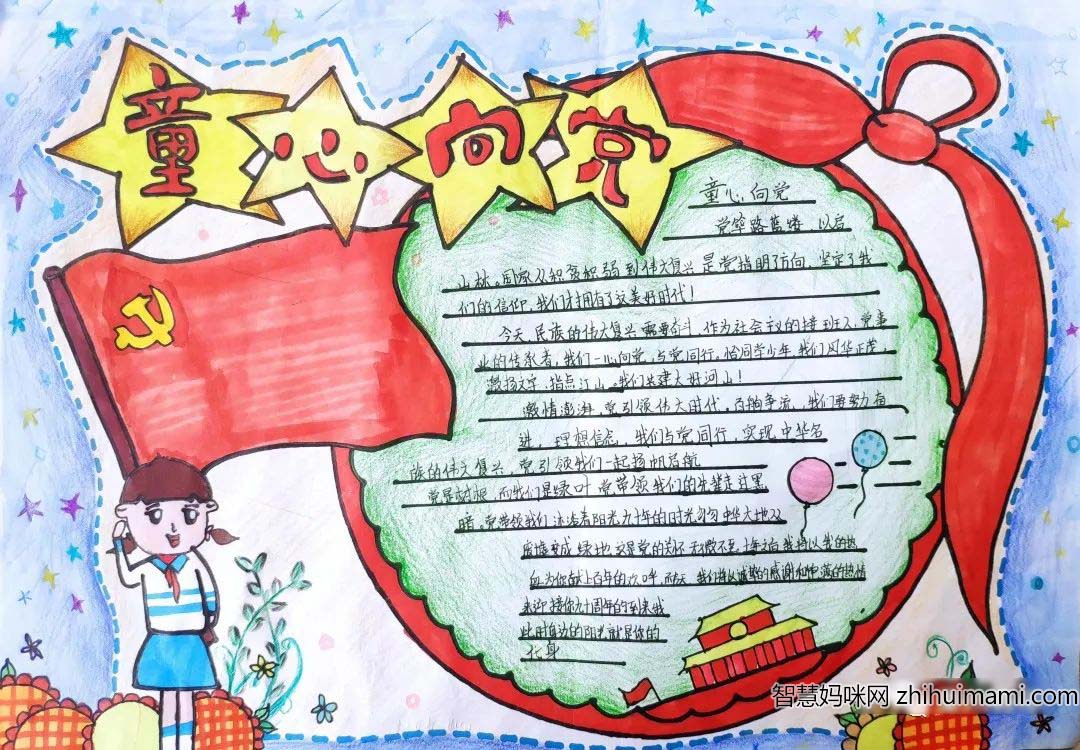 童心向党
童心向党
党筚路蓝缕，以启
山林。国家从积贫积弱到伟大复兴是党指明了方向，坚定了我
们的信仰，我们才拥有了这美好时代！
今天，民族的伟大复兴需要奋斗，作为社会主义的接班人，党事
业的传承者，我们一心向党，与党同行，恰同学少年，我们风华正茂
激扬文字，指点江山。我们共建大好河山！
激情澎湃，党引领伟大时代，百舸争流，我们要努力奋
进，理想信念，我们与党同行，实现中华名
族的伟大复兴，党引领我们一起扬帆启航
党是 而我们是绿叶 党带领我们的先辈走过黑
暗，党带领我们沐浴着阳光九十年的时光匆匆中华大地
废墟变成绿地 这是党的关怀无微不至，十年之后我将以我的热
血为你献上百年的欢呼，而今天，我们将以诚挚的感谢和 的热情
来迎接你九十周年的到来我
此时身边的阳光就是你的
化身
智慧妈咪网 zhihuimami.com